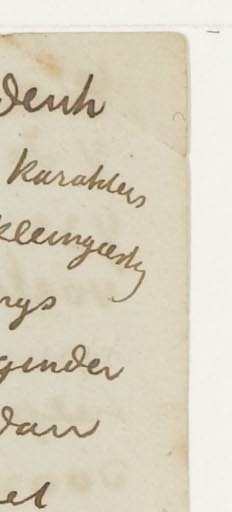 denk
karakters
kleingeesty
nys
ginder
dan
el